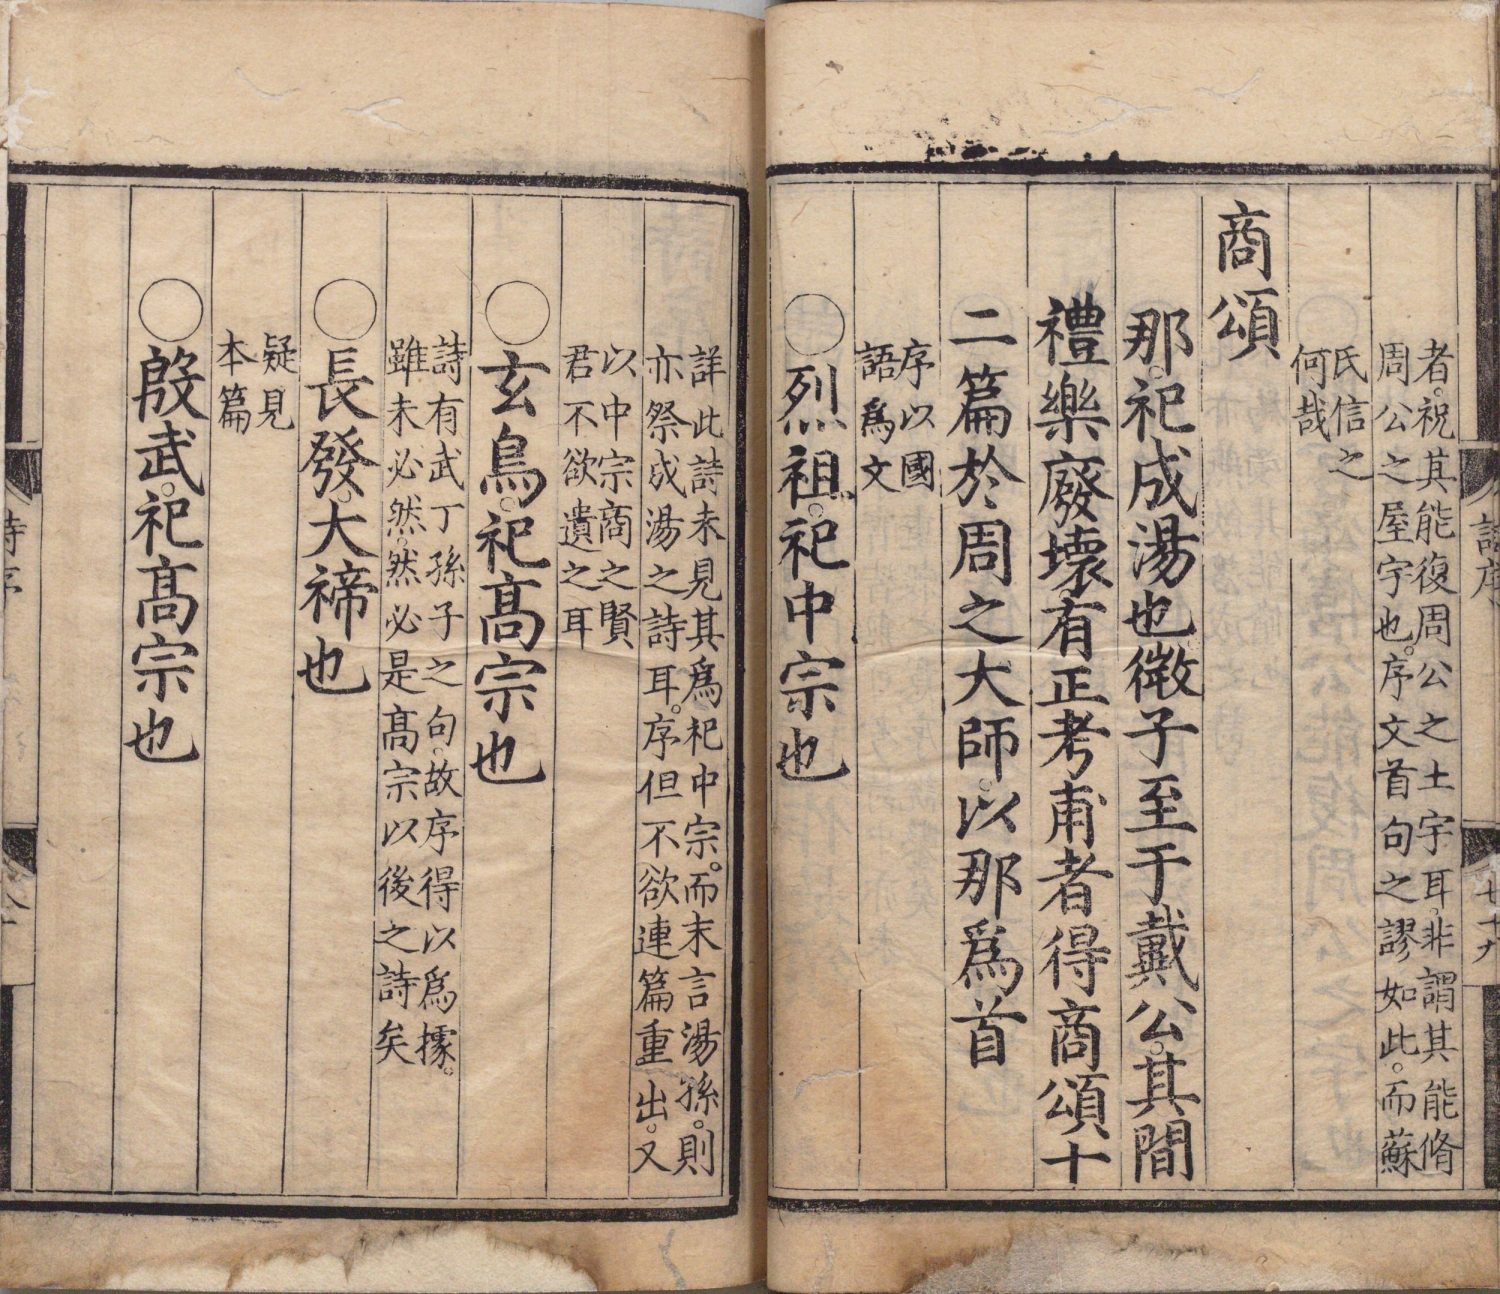 者祝其能復周公之土宇耳非謂其能脩
周公之屋宇也序文首句之謬如此而蘇
氏信之
何哉
商頌
那祀成湯也微子至于戴公其間
禮樂廢壞有正考甫者得商頌十
二篇於周之大師以那爲首
序以國
語爲文
〇烈祖祀中宗也
詳此詩未見其爲祀中宗而末言湯孫則
亦祭成湯之詩耳序但不欲連篇重出又
以中宗商之賢
君不欲遺之耳
〇玄鳥祀高宗也
詩有武丁孫子之句故序得以爲據
雖未必然然必是高宗以後之詩矣
〇長發大禘也
疑見
本篇
〇殷武祀高宗也
詩序
七十九